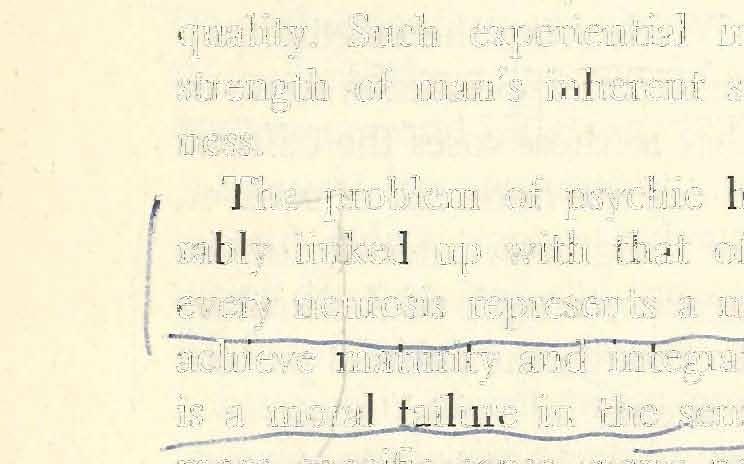 quality. Such experiential
strength of man's inherent
ness.
The problem of psychic
rably linked up with that
every neurosis represents a
achieve maturity and
is a moral failure in the